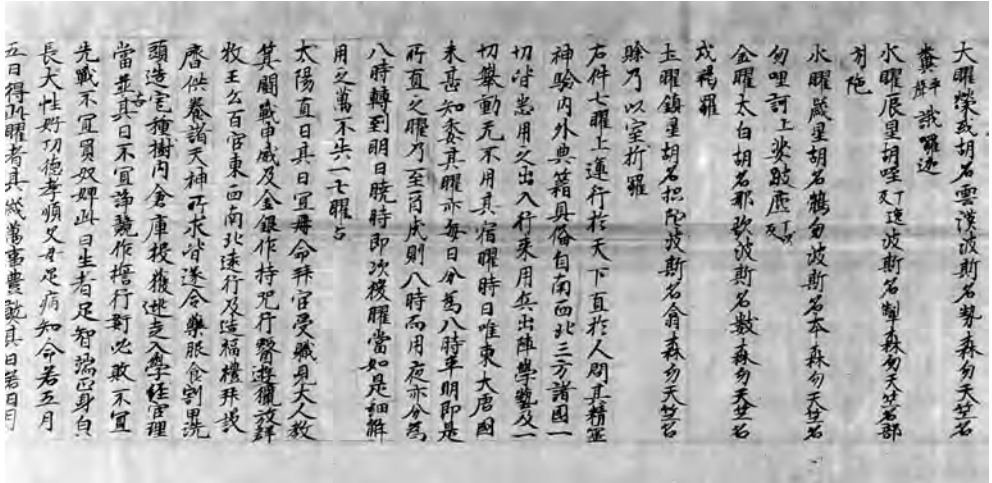 火曜熒惑胡名雲漢波斯名勢森勿天竺名
糞聲哦羅迦
水曜辰星胡咥丁逸反波斯名掣森勿天竺名部
引陁
木曜歲星胡名鶻勿波斯名本森勿天竺名
勿哩訶上娑跛底丁以反
金曜太白胡名那歇波斯名數森勿天竺名
戍羯羅
土曜鎮星胡名枳院波斯名翕森勿天竺名
賒乃以室折羅
右件七曜上運行於天下直於人間其精靈
神驗內外典籍具俻自南西北三方諸國一
切皆悉用之出入行來用兵出陣學藝及一
切舉動无不用其宿曜時日唯東大唐國
未甚知委其曜亦每日分為八時平明即是
所直之曜乃至酉戌則八時而用夜亦分為
八時轉到明日曉時即次後曜當如是細解
用之萬不失一七曜占
太陽直日其日宜冊命拜官受職見大人教
旗鬪戰申威及金銀作持呪行醫遊獵放群
牧王公百官東西南北遠行及造福禮拜設
齋供養諸天神所求皆遂合藥服食割甲洗
頭造宅種樹內倉庫捉獲逃走入學經官理
當並吉其日不宜諍競作誓行姧必敗不宜
先戰不宜買奴婢此日生者足智端正身皃
長大性好功德孝順父母足病短命若五月
五日得此曜者其歲萬事豊熟其日若日月